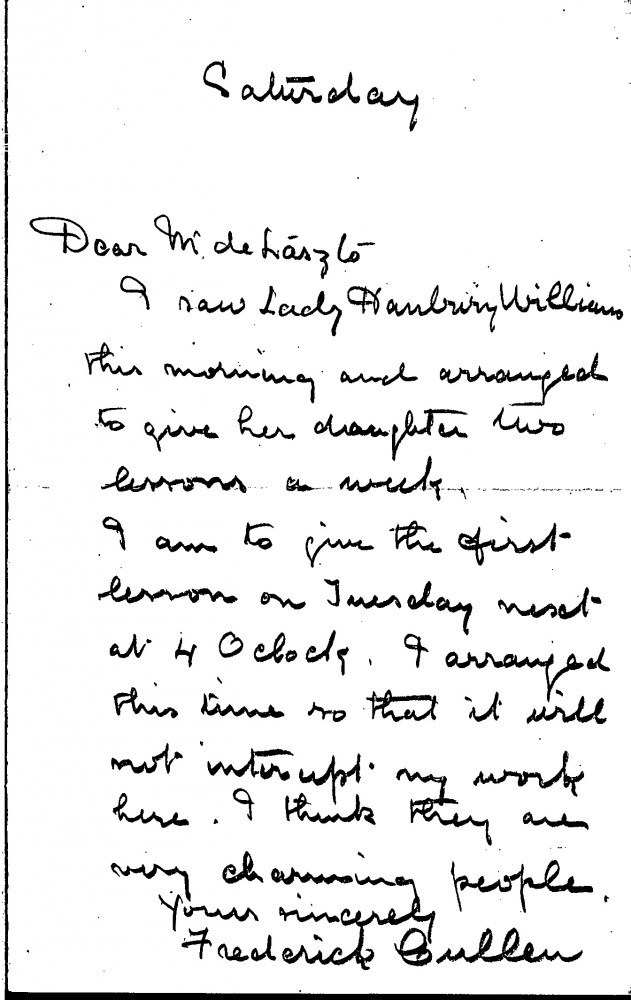 Saturday
Dear Mr. de László
I saw Lady Hanbury Williams
this morning and arranged
to give her daughter two
lessons a week.
I am to give the first
lesson on Tuesday next
at 4 Oclock. I arranged
this time so that it will
not interupt my work
here. I think they are
very charming people.
Yours sincerely
Frederick Cullen